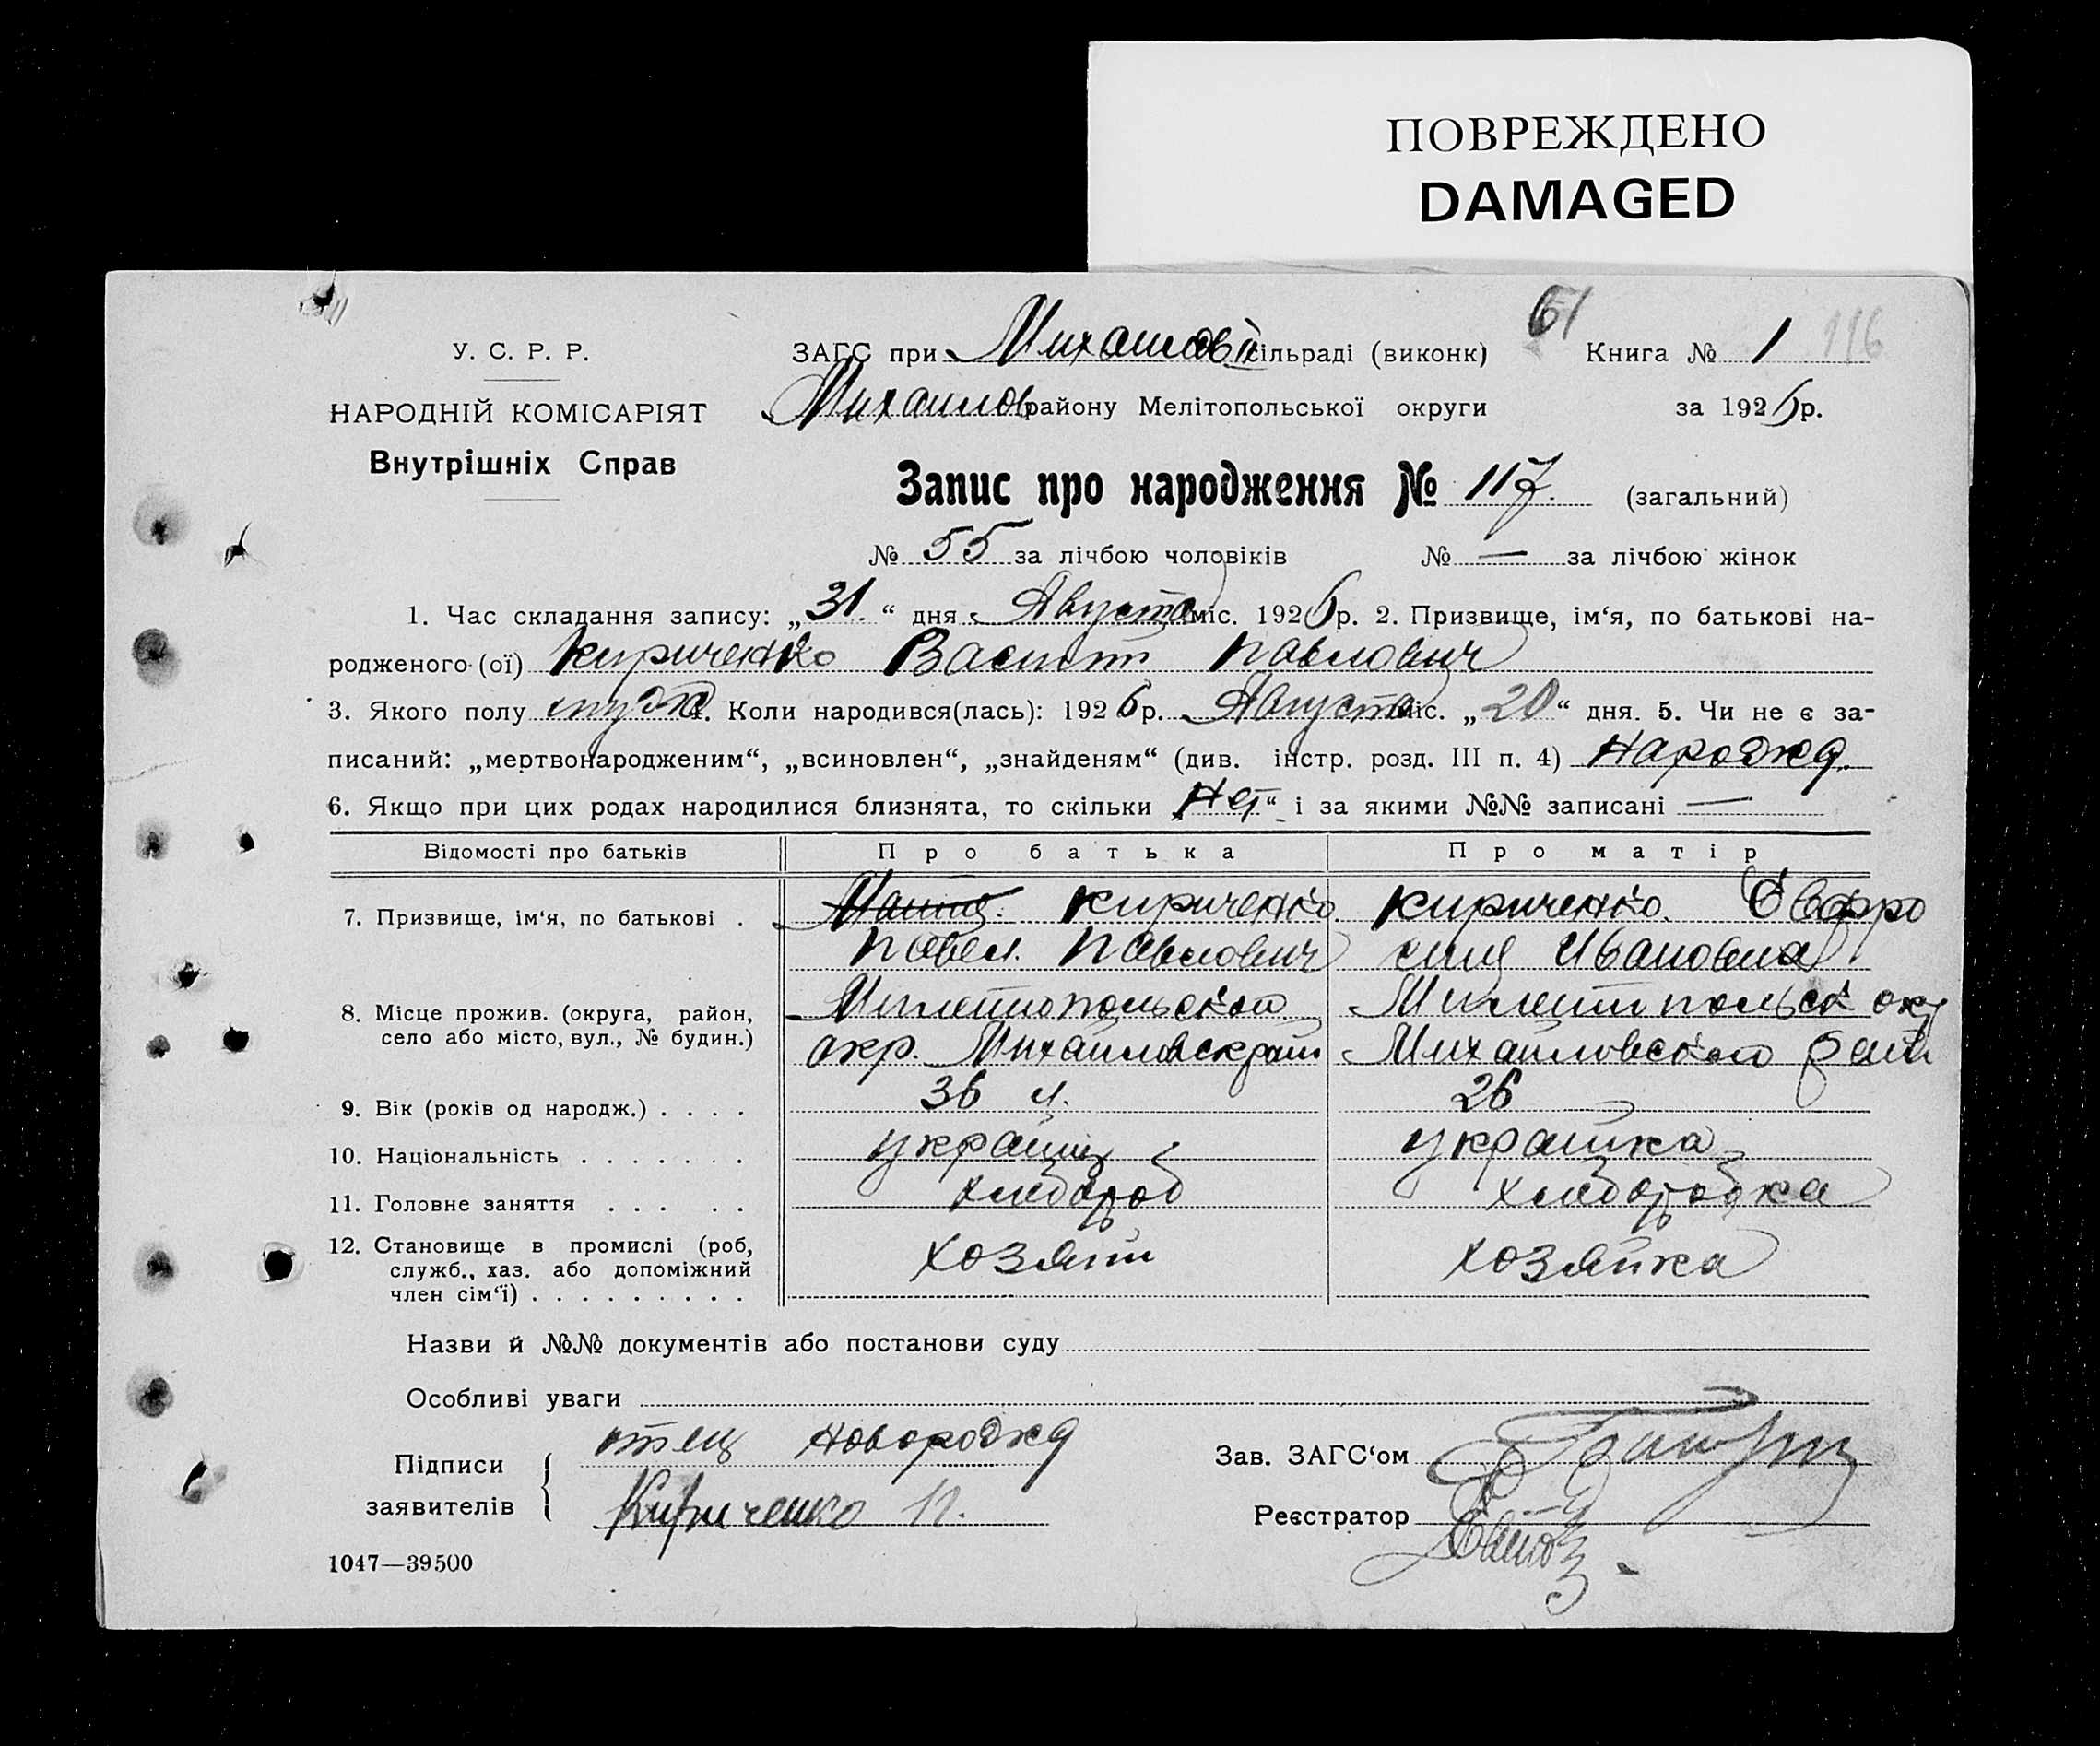 ПОВРЕЖДЕНО
DAMAGED
61
У. С. Р. Р.
ЗАГС при Михайловській сільраді (виконк) Книга № 1 116
НАРОДНІЙ КОМІСАРІЯТ
Михайлов району Мелітопольської округи за 1926 р.
Внутрішніх Справ
Запис про народження № 117. (загальний)
№ 55 за лічбою чоловіків № — за лічбою жінок
1. Час складання запису: „31.“ дня Августа міс. 1926 р. 2. Призвище, ім‘я, по батькові на-
родженого (ої) Кириченко Павлович
3. Якого полу муж 4. Коли народився(лась): 1926 р. Августа міс. „20“ дня. 5. Чи не є за-
писаний: „мертвонародженим“, „всиновлен“, „знайденям“ (див. інстр. розд. III п. 4) Нарожд.
6. Якщо при цих родах народилися близнята, то скільки „Нет“ і за якими №№ записані —
Відомості про батьків Про батька Про матір
7. Призвище, ім‘я, по батькові . Кириченко Кириченко. Евфро
Павел. Павлович синя Ивановна
8. Місце прожив. (округа, район, Милетопольской Милетипольск окр
село або місто, вул., № будин.) окр. Михайловск райн Михайловского райн
9. Вік (років од народж.) . . . . 36 л. 26
10. Національність . . . . . . . украинц украинка
11. Головне заняття . . . . . хлебороб хлеборобка
12. Становище в промислі (роб, хозяин хозяйка
служб., хаз. або допоміжний
член сім‘ї) . . . . . . . . .
Назви й №№ документів або постанови суду
Особливі уваги
отец новорожд
Підписи
заявителів
Кириченко П.
Зав. ЗАГС‘ом
Реєстратор
1047—39500